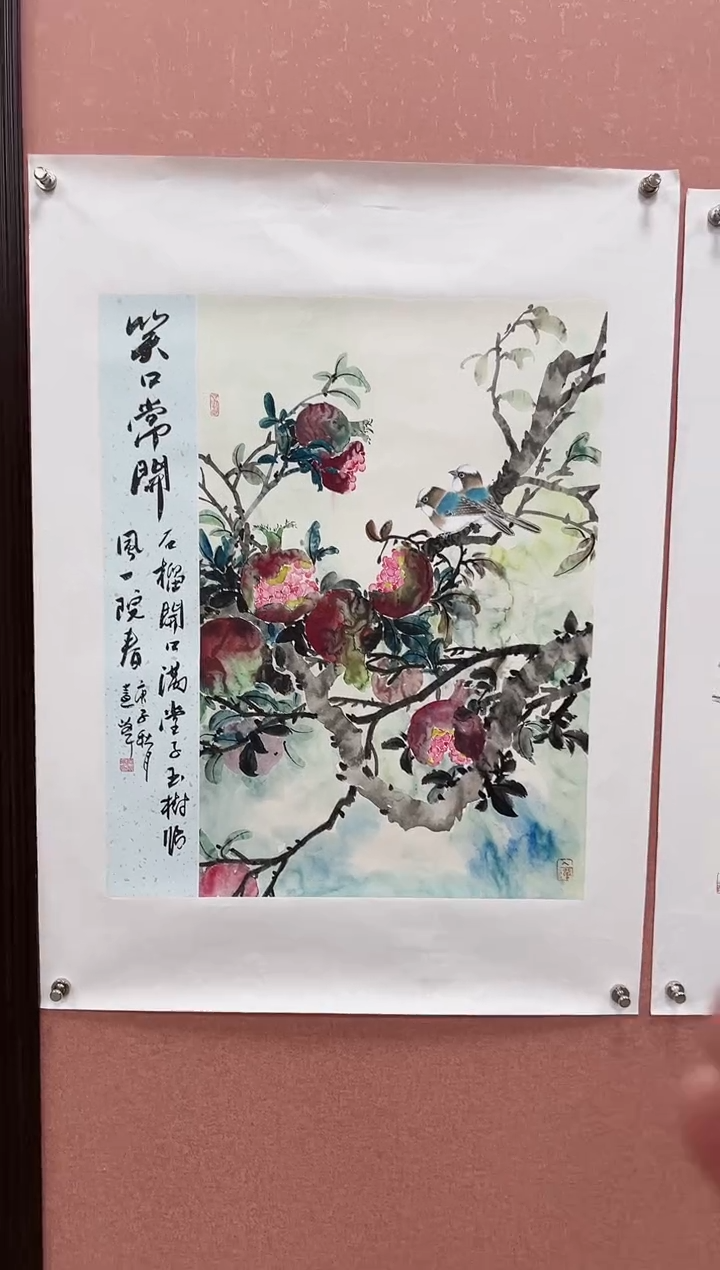 笑口常開
石榴開口滿堂子玉樹臨
風一院春
庚子秋月